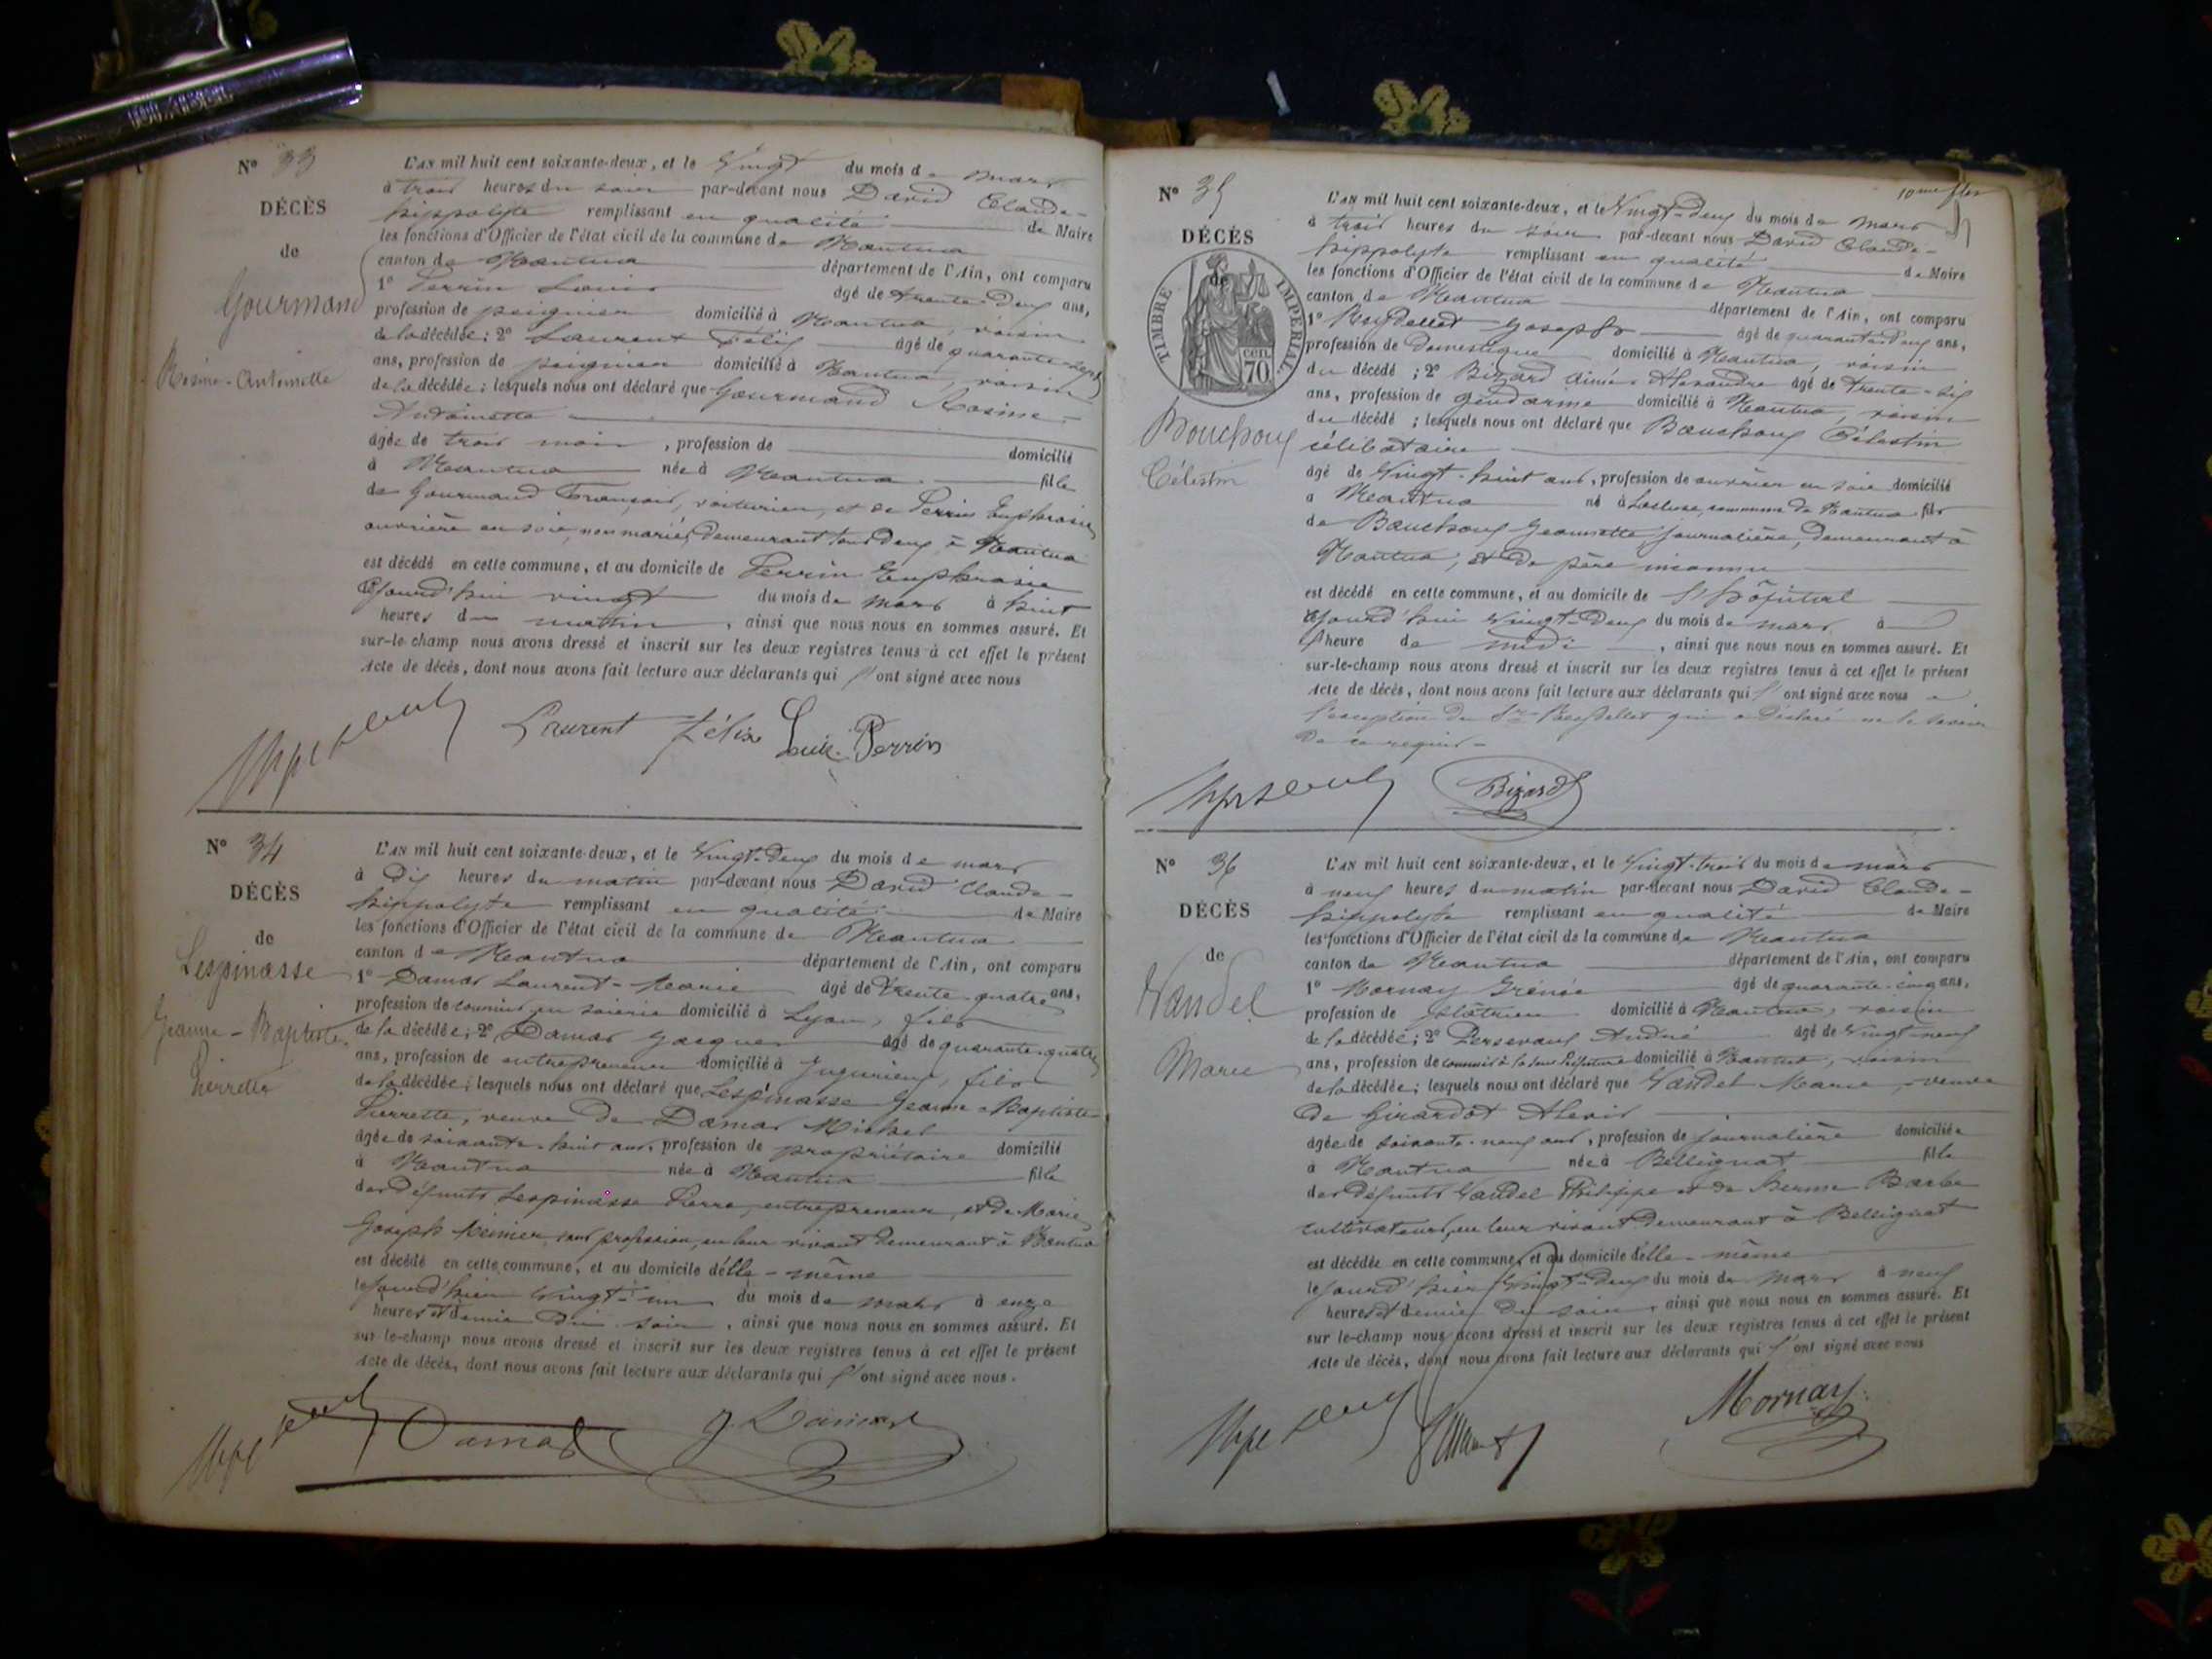 N° 33
DÉCÈS
de
Gourmand
Rosine-Antoinette
L'AN mil huit cent soixante-deux, et le Vingt du mois de mars
à trois heures du soir par-devant nous David Claude-
hippolyte remplissant en qualité de Maire
les fonctions d'Officier de l'état civil de la commune de Nantua
canton de Nantua département de l'Ain, ont comparu
1° Perrin Louis âgé de trente-deux ans,
profession de peignier domicilié à Nantua, voisin
de la décédée; 2° Laurent Félix âgé de quarante-sept
ans, profession de peignier domicilié à Nantua, voisin
de la décédée; lesquels nous ont déclaré que Gourmand Rosine-
Antoinette
âgée de trois mois, profession de domicilié
à Nantua née à Nantua fille
de Gourmand François, voiturier, et de Perrin Euphrasie
ouvrière en soie, non mariés, demeurant tous deux à Nantua
est décédé en cette commune, et au domicile de Perrin Euphrasie
Cejourd'hui vingt du mois de mars à huit
heures du matin, ainsi que nous nous en sommes assuré. Et
sur-le-champ nous avons dressé et inscrit sur les deux registres tenus à cet effet le présent
Acte de décès, dont nous avons fait lecture aux déclarants qui l'ont signé avec nous
Laurent félix Louis Perrin
N° 34
DÉCÈS
de
Lespinasse
Jeanne-Baptiste
Pierrette
L'AN mil huit cent soixante-deux, et le Vingt-deux du mois de mars
à dix heures du matin par-devant nous David Claude-
hippolyte remplissant en qualité de Maire
les fonctions d'Officier de l'état civil de la commune de Nantua
canton de Nantua département de l'Ain, ont comparu
1° Damas Laurent-Marie âgé de trente-quatre ans,
profession de commis en soierie domicilié à Lyon, fils
de la décédée; 2° Damas Jacques âgé de quarante-quatre
ans, profession de entrepreneur domicilié à Jujurieux, fils
de la décédée; lesquels nous ont déclaré que Lespinasse Jeanne-Baptiste
Pierrette, veuve de Damas Michel
âgée de soixante-huit ans, profession de propriétaire domicilié
à Nantua née à Nantua fille
des défunts Lespinasse Pierre, entrepreneur, et de Marie
Joseph sans profession, en leur vivant demeurant à Nantua
est décédé en cette commune, et au domicile d'elle-même
le jourd'hier vingt-un du mois de mars à onze
heures et demie du soir, ainsi que nous nous en sommes assuré. Et
sur-le-champ nous avons dressé et inscrit sur les deux registres tenus à cet effet le présent
Acte de décès, dont nous avons fait lecture aux déclarants qui l'ont signé avec nous.
Damas J. Damas
10me
N° 35
DÉCÈS
de
TIMBRE IMPÉRIAL
70 cen.
Bouchoux
Célestin
L'AN mil huit cent soixante-deux, et le Vingt-deux du mois de mars
à trois heures du soir par-devant nous David Claude-
hippolyte remplissant en qualité de Maire
les fonctions d'Officier de l'état civil de la commune de Nantua
canton de Nantua département de l'Ain, ont comparu
1° Joseph âgé de quarante-deux ans,
profession de Domestique domicilié à Nantua, voisin
du décédé; 2° Bizard Aimé-Alexandre âgé de trente-six
ans, profession de gendarme domicilié à Nantua, voisin
du décédé; lesquels nous ont déclaré que Bouchoux Célestin
célibataire
âgé de Vingt-huit ans, profession de ouvrier en soie domicilié
à Nantua né à commune de Nantua fils
de Bouchoux Jeannette, journalière, demeurant à
Nantua, et de père inconnu
est décédé en cette commune, et au domicile de l'hôpital
Cejourd'hui Vingt-deux du mois de mars à
l'heure de midi, ainsi que nous nous en sommes assuré. Et
sur-le-champ nous avons dressé et inscrit sur les deux registres tenus à cet effet le présent
Acte de décès, dont nous avons fait lecture aux déclarants qui l'ont signé avec nous à
l'exception du Sr qui a déclaré ne le savoir
de ce requis-
Bizard
N° 36
DÉCÈS
de
Vandel
Marie
L'AN mil huit cent soixante-deux, et le Vingt-trois du mois de mars
à neuf heures du matin par-devant nous David Claude-
hippolyte remplissant en qualité de Maire
les fonctions d'Officier de l'état civil de la commune de Nantua
canton de Nantua département de l'Ain, ont comparu
1° Mornay Irénée âgé de quarante-cinq ans,
profession de plâtrier domicilié à Nantua, voisin
de la décédée; 2° André âgé de vingt-neuf
ans, profession de commis à la Sous Préfecture domicilié à Nantua, voisin
de la décédée; lesquels nous ont déclaré que Vandel Marie, veuve
de Girardot Alexis
âgée de soixante-neuf ans, profession de journalière domiciliée
à Nantua née à Bellignat fille
des défunts Vandel Philippe et de Barbe
cultivateurs, en leur vivant demeurant à Bellignat
est décédée en cette commune, et au domicile d'elle-même
le jourd'hier Vingt-deux du mois de mars à neuf
heures et demie du soir, ainsi que nous nous en sommes assuré. Et
sur le-champ nous avons dressé et inscrit sur les deux registres tenus à cet effet le présent
Acte de décès, dont nous avons fait lecture aux déclarants qui l'ont signé avec nous
Mornay